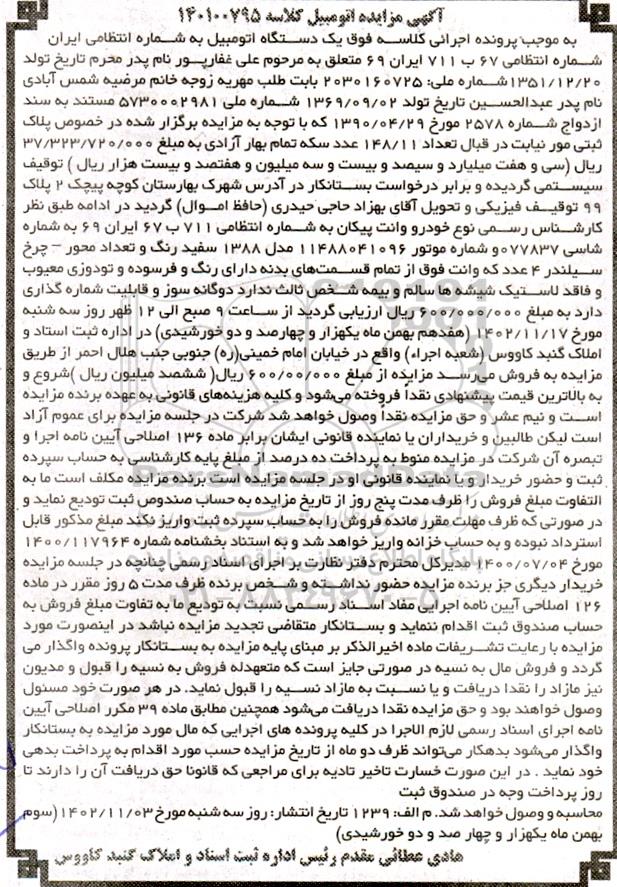 آگهی مزایده اتومبیل کلاسه ۱۴۰۱۰۰۷۹۵
به موجب پرونده اجرائی کلاسه فوق یک دستگاه اتومبیل به شماره انتظامی ایران
شماره انتظامی ۶۷ ب ۷۱۱ ایران ۶۹ متعلق به مرحوم علی غفارپور نام پدر محرم تاریخ تولد
۱۳۵۱/۱۲/۲۰شماره ملی: ۲۰۳۰۱۶۰۷۲۵ بابت طلب مهریه زوجه خانم مرضیه شمس آبادی
نام پدر عبدالحسین تاریخ تولد ۱۳۶۹/۰۹/۰۲ شماره ملی ۵۷۳۰۰۰۲۹۸۱ مستند به سند
ازدواج شماره ۲۵۷۸ مورخ ۱۳۹۰/۰۴/۲۹ که با توجه به مزایده برگزار شده در خصوص پلاک
ثبتی مور نیابت در قبال تعداد ۱۴۸/۱۱ عدد سکه تمام بهار آزادی به مبلغ ۳۷/۳۲۳/۷۲۰/۰۰۰
ریال (سی و هفت میلیارد و سیصد و بیست و سه میلیون و هفتصد و بیست هزار ریال ) توقیف
سیستمی گردیده و برابر درخواست بستانکار در آدرس شهرک بهارستان کوچه پیچک ۲ پلاک
۹۹ توقیف فیزیکی و تحویل آقای بهزاد حاجی حیدری (حافظ اموال) گردید در ادامه طبق نظر
کارشناس رسمی نوع خودرو وانت پیکان به شماره انتظامی ۷۱۱ ب ۶۷ ایران ۶۹ به شماره
شاسی ۰۷۷۸۳۷و شماره موتور ۱۱۴۸۸۰۴۱۰۹۶ مدل ۱۳۸۸ سفید رنگ و تعداد محور – چرخ
سیلندر ۴ عدد که وانت فوق از تمام قسمت‌های بدنه دارای رنگ و فرسوده و تودوزی معیوب
و فاقد لاستیک شیشه ها سالم و بیمه شخص ثالث ندارد دوگانه سوز و قابلیت شماره گذاری
دارد به مبلغ ۶۰۰/۰۰۰/۰۰۰ ریال ارزیابی گردید از ساعت ۹ صبح الی ۱۲ ظهر روز سه شنبه
مورخ ۱۴۰۲/۱۱/۱۷ (هفدهم بهمن ماه یکهزار و چهارصد و دو خورشیدی) در اداره ثبت اسناد و
املاک گنبد کاووس (شعبه اجراء) واقع در خیابان امام خمینی(ره) جنوبی جنب هلال احمر از طریق
مزایده به فروش می‌رسد مزایده از مبلغ ۶۰۰/۰۰/۰۰۰ ریال( ششصد میلیون ریال )شروع و
به بالاترین قیمت پیشنهادی نقداً فروخته می‌شود و کلیه هزینه‌های قانونی به عهده برنده مزایده
است و نیم عشر و حق مزایده نقداً وصول خواهد شد شرکت در جلسه مزایده برای عموم آزاد
است لیکن طالبین و خریداران یا نماینده قانونی ایشان برابر ماده ۱۳۶ اصلاحی آیین نامه اجرا و
تبصره آن شرکت در مزایده منوط به پرداخت ده درصد از مبلغ پایه کارشناسی به حساب سپرده
ثبت و حضور خریدار و یا نماینده قانونی او در جلسه مزایده است برنده مزایده مکلف است ما به
التفاوت مبلغ فروش را ظرف مدت پنج روز از تاریخ مزایده به حساب صندوص ثبت تودیع نماید و
در صورتی که ظرف مهلت مقرر مانده فروش را به حساب سپرده ثبت واریز نکند مبلغ مذکور قابل
استرداد نبوده و به حساب خزانه واریز خواهد شد و به استناد بخشنامه شماره ۱۴۰۰/۱۱۷۹۶۴
مورخ ۱۴۰۰/۰۷/۰۴ مدیرکل محترم دفتر نظارت بر اجرای اسناد رسمی چنانچه در جلسه مزایده
خریدار دیگری جز برنده مزایده حضور نداشته و شخص برنده ظرف مدت ۵ روز مقرر در ماده
۱۲۶ اصلاحی آیین نامه اجرایی مفاد اسناد رسمی نسبت به تودیع ما به تفاوت مبلغ فروش به
حساب صندوق ثبت اقدام ننماید و بستانکار متقاضی تجدید مزایده نباشد در اینصورت مورد
مزایده با رعایت تشریفات ماده اخیرالذکر بر مبنای پایه مزایده به بستانکار پرونده واگذار می
گردد و فروش مال به نسیه در صورتی جایز است که متعهدله فروش به نسیه را قبول و مدیون
نیز مازاد را نقدا دریافت و یا نسبت به مازاد نسیه را قبول نماید. در هر صورت خود مسئول
وصول خواهند بود و حق مزایده نقدا دریافت می‌شود همچنین مطابق ماده ۳۹ مکرر اصلاحی آیین
نامه اجرای اسناد رسمی لازم الاجرا در کلیه پرونده های اجرایی که مال مورد مزایده به بستانکار
واگذار می‌شود بدهکار می‌تواند ظرف دو ماه از تاریخ مزایده حسب مورد اقدام به پرداخت بدهی
خود نماید . در این صورت خسارت تاخیر تادیه برای مراجعی که قانونا حق دریافت آن را دارند تا
روز پرداخت وجه در صندوق ثبت
محاسبه و وصول خواهد شد. م الف: ۱۲۳۹ تاریخ انتشار: روز سه شنبه مورخ ۱۴۰۲/۱۱/۰۳(سوم
بهمن ماه یکهزار و چهار صد و دو خورشیدی)
هادی عطائی مقدم رئیس اداره ثبت اسناد و املاک گنبد کاووس